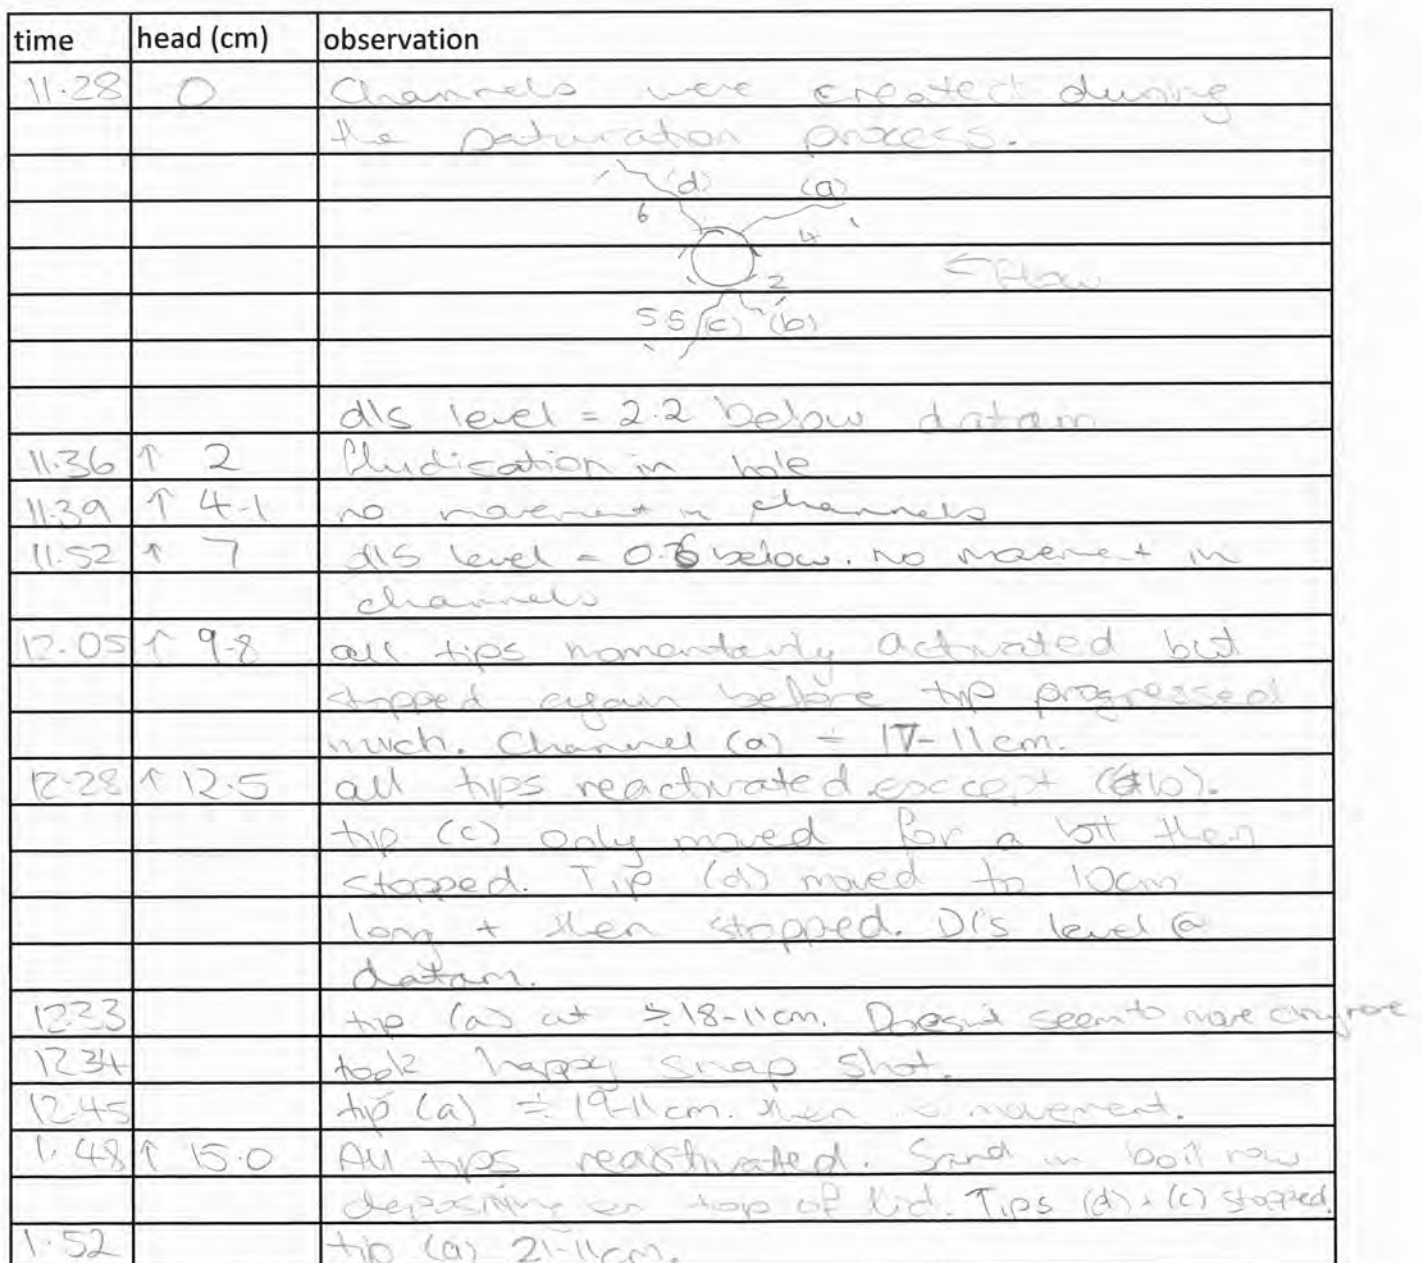 time head (cm) observation
11.28 0 Channels were created during
the saturation process.
(d) (a)
6 4
← Flow
2
5.5 (c) (b)
d/s level = 2.2 below datam
11.36 ↑ 2 fludication in hole
11.39 ↑ 4.1 no movement in channels
11.52 ↑ 7 d/s level = below. no movement in
channels
12.05 ↑ 9.8 all tips momentarily activated but
stopped again before tip progressed
much. Channel (a) = 11cm.
12.28 ↑ 12.5 all tips reactivated except (b).
tip (c) only moved for a bit then
stopped. Tip (d) moved to 10cm
long + then stopped. D/s level @
datam.
12.33 tip (a) at ≑ 18-11cm. Doesn't seem to move anymore
12.34 took happy snap shot.
12.45 tip (a) ≑ 19-11cm. then no movement.
1.48 ↑ 15.0 All tips reactivated. Sand in boil now
depositing on top of lid. Tips (d) + (c) stopped.
1.52 tip (a) 21-11cm.